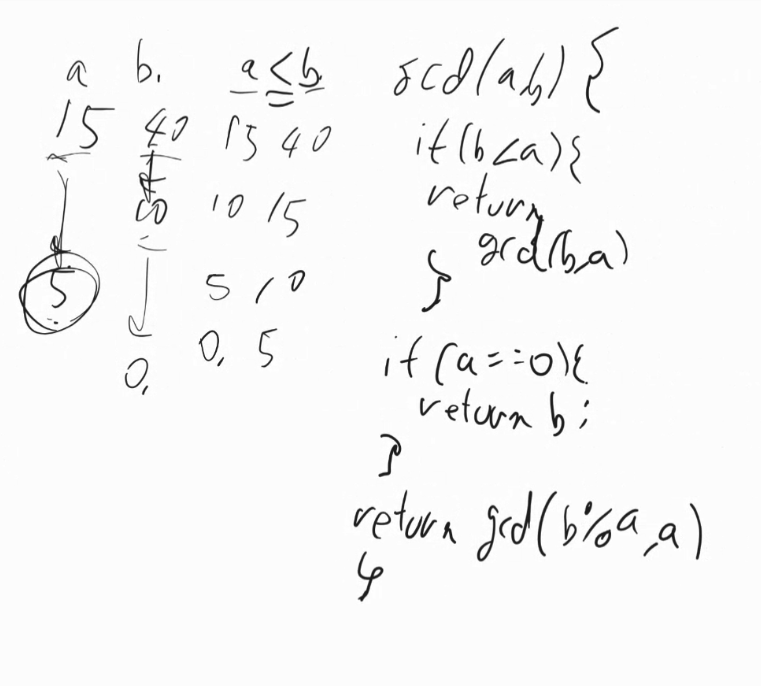 a b. a ≤ b
15 40 15 40
10 10 15
5 5 10
0, 0, 5
gcd(a,b) {
if(b<a){
return
gcd(b,a)
}
if(a==0){
return b;
}
return gcd(b%a,a)
}